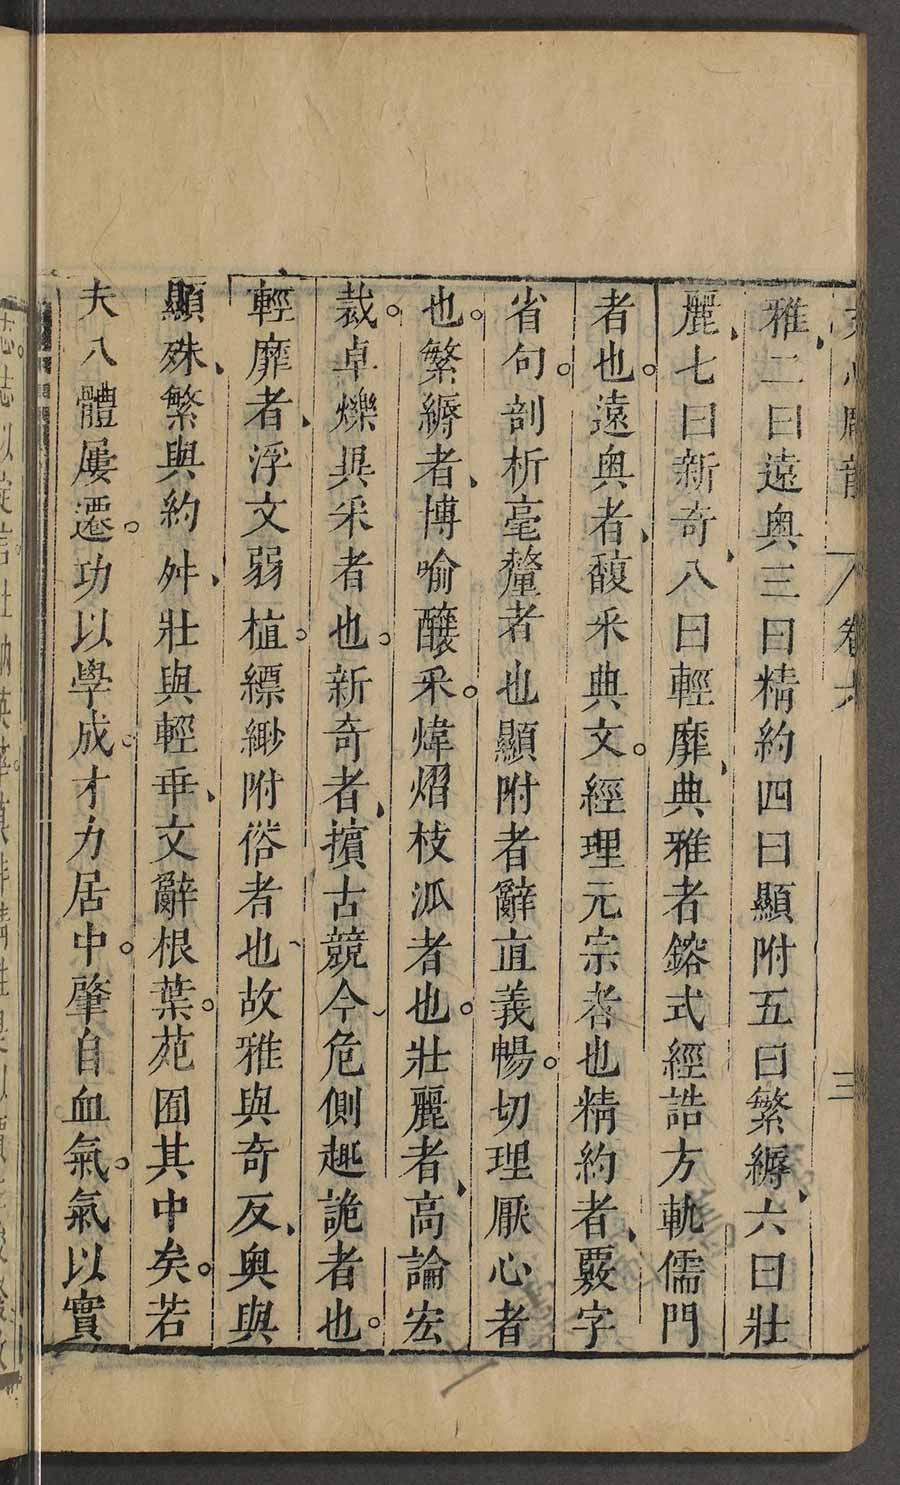 文心雕龍 卷六 三
雅、二曰遠奧三曰精約四曰顯附五曰繁縟、六曰壯
麗、七曰新奇、八曰輕靡、典雅者鎔式經誥方軌儒門
者也。遠奧者、馥采典文。經理元宗者也精約者、覈字
省句。剖析毫釐者也顯附者辭直義暢。切理厭心者
也。繁縟者、博喻釀采。煒熠枝派者也。壯麗者、高論宏
裁。卓爍異采者也。新奇者、擯古競今、危側趣詭者也。
輕靡者、浮文弱植。縹緲附俗者也、故雅與奇反、奧與
顯殊、繁與約舛、壯與輕乖、文辭根葉。苑囿其中矣。若
夫八體屢遷。功以學成。才力居中。肇自血氣。氣以實